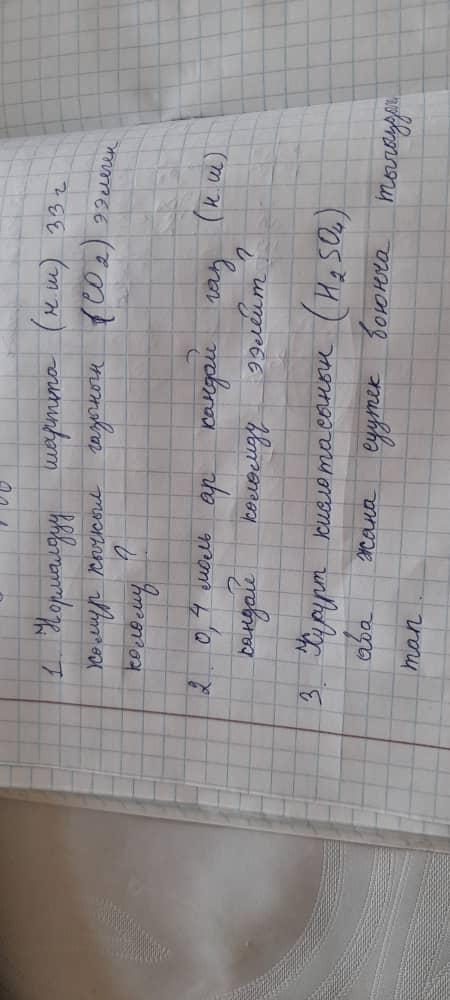 1. Нормалдуу шартта (н.ш) 33 г
көмүр кычкыл газынын (CO2) ээлеген
көлөмү ?
2. 0,4 моль ар кандай газ (н.ш)
кандай көлөмдү ээлейт ?
3. Күкүрт кислотасынын (H2SO4)
аба жана суутек боюнча тыгыздыгын
тап.